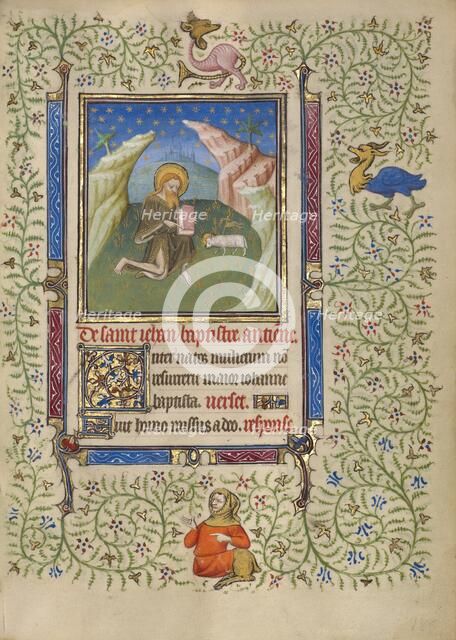 De saint jehan baptistre antiene.
Inter natos mulierum nō
surrexit maior iohanne
baptista. Verset.
Fuit homo missus a deo. response
Heritage
Heritage
Heritage
Heritage
Heritage
Heritage